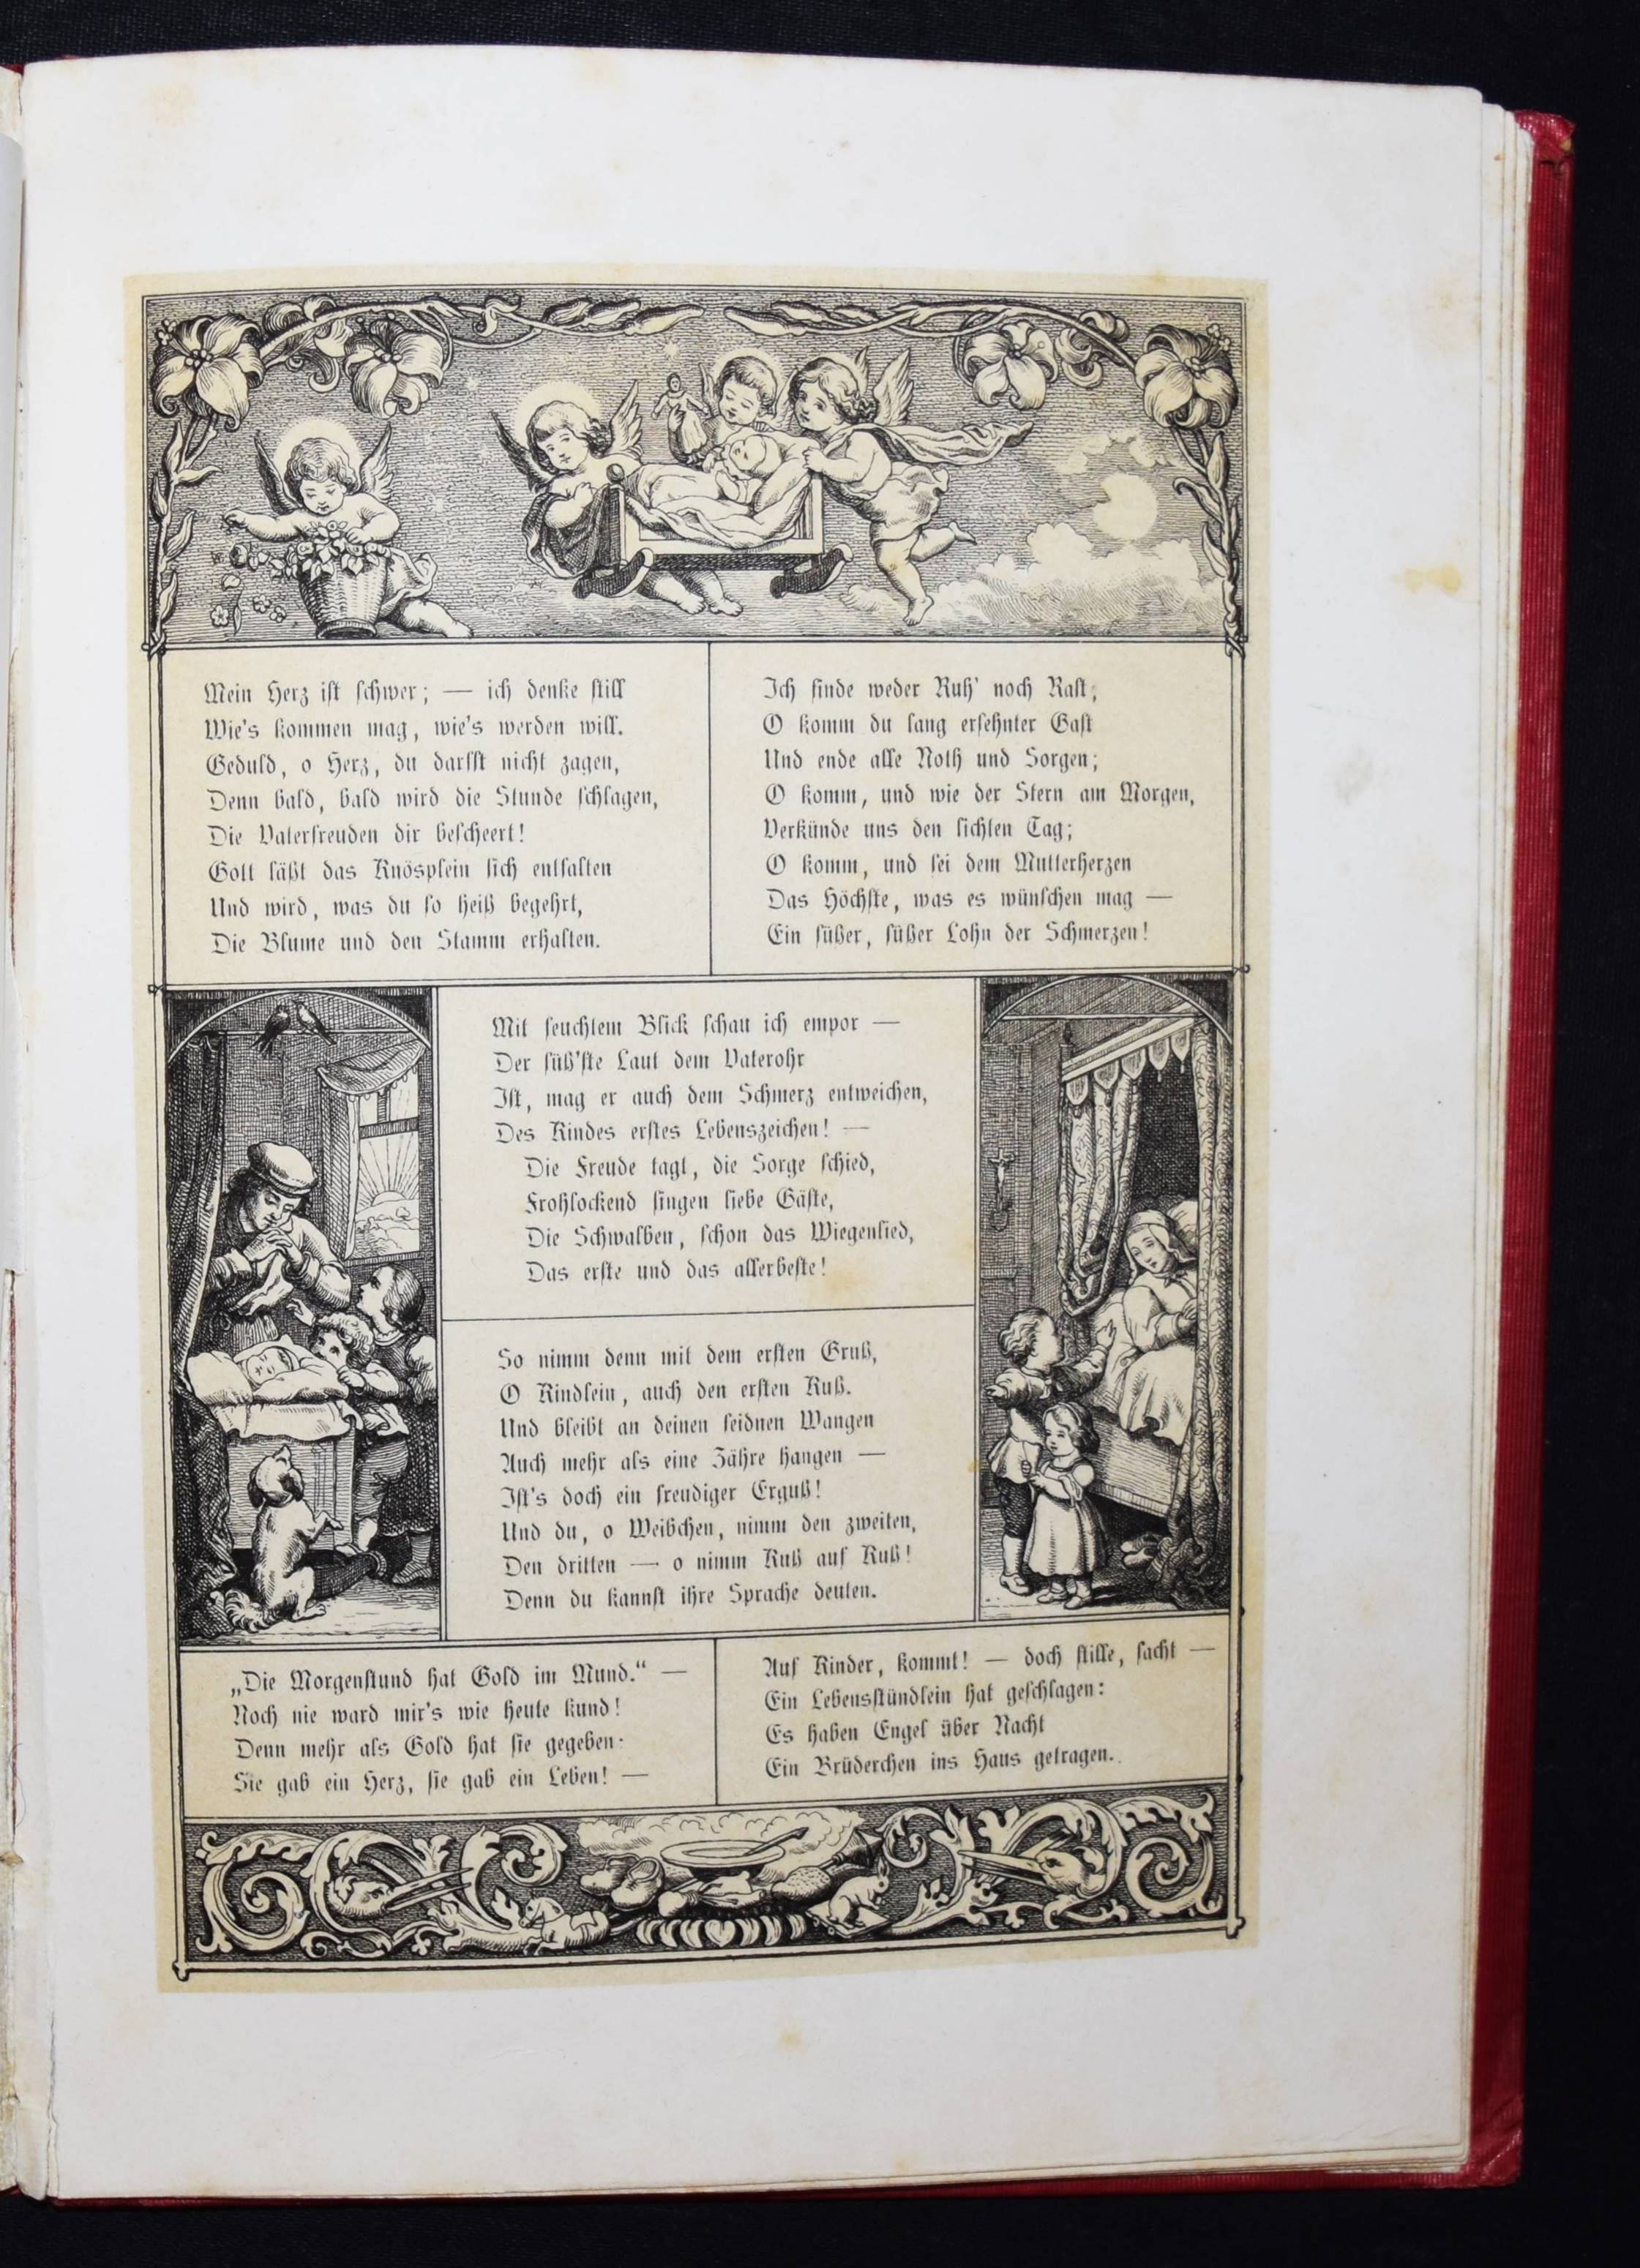 Mein Herz ist schwer; — ich denke still
Wie's kommen mag, wie's werden will.
Geduld, o Herz, du darfst nicht zagen,
Denn bald, bald wird die Stunde schlagen,
Die Vaterfreuden dir bescheert!
Gott läßt das Knösplein sich entfalten
Und wird, was du so heiß begehrt,
Die Blume und den Stamm erhalten.
Ich finde weder Ruh' noch Rast;
O komm du lang ersehnter Gast
Und ende alle Noth und Sorgen;
O komm, und wie der Stern am Morgen,
Verkünde uns den lichten Tag;
O komm, und sei dem Mutterherzen
Das Höchste, was es wünschen mag —
Ein süßer, süßer Lohn der Schmerzen!
Mit feuchtem Blick schau ich empor —
Der süß'ste Laut dem Vaterohr
Ist, mag er auch dem Schmerz entweichen,
Des Kindes erstes Lebenszeichen! —
Die Freude tagt, die Sorge schied,
Frohlockend singen liebe Gäste,
Die Schwalben, schon das Wiegenlied,
Das erste und das allerbeste!
So nimm denn mit dem ersten Gruß,
O Kindlein, auch den ersten Kuß.
Und bleibt an deinen seidnen Wangen
Auch mehr als eine Zähre hangen —
Ist's doch ein freudiger Erguß!
Und du, o Weibchen, nimm den zweiten,
Den dritten — o nimm Kuß auf Kuß!
Denn du kannst ihre Sprache deuten.
„Die Morgenstund hat Gold im Mund.“ —
Noch nie ward mir's wie heute kund!
Denn mehr als Gold hat sie gegeben:
Sie gab ein Herz, sie gab ein Leben! —
Auf Kinder, kommt! — doch stille, sacht —
Ein Lebensstündlein hat geschlagen:
Es haben Engel über Nacht
Ein Brüderchen ins Haus getragen.